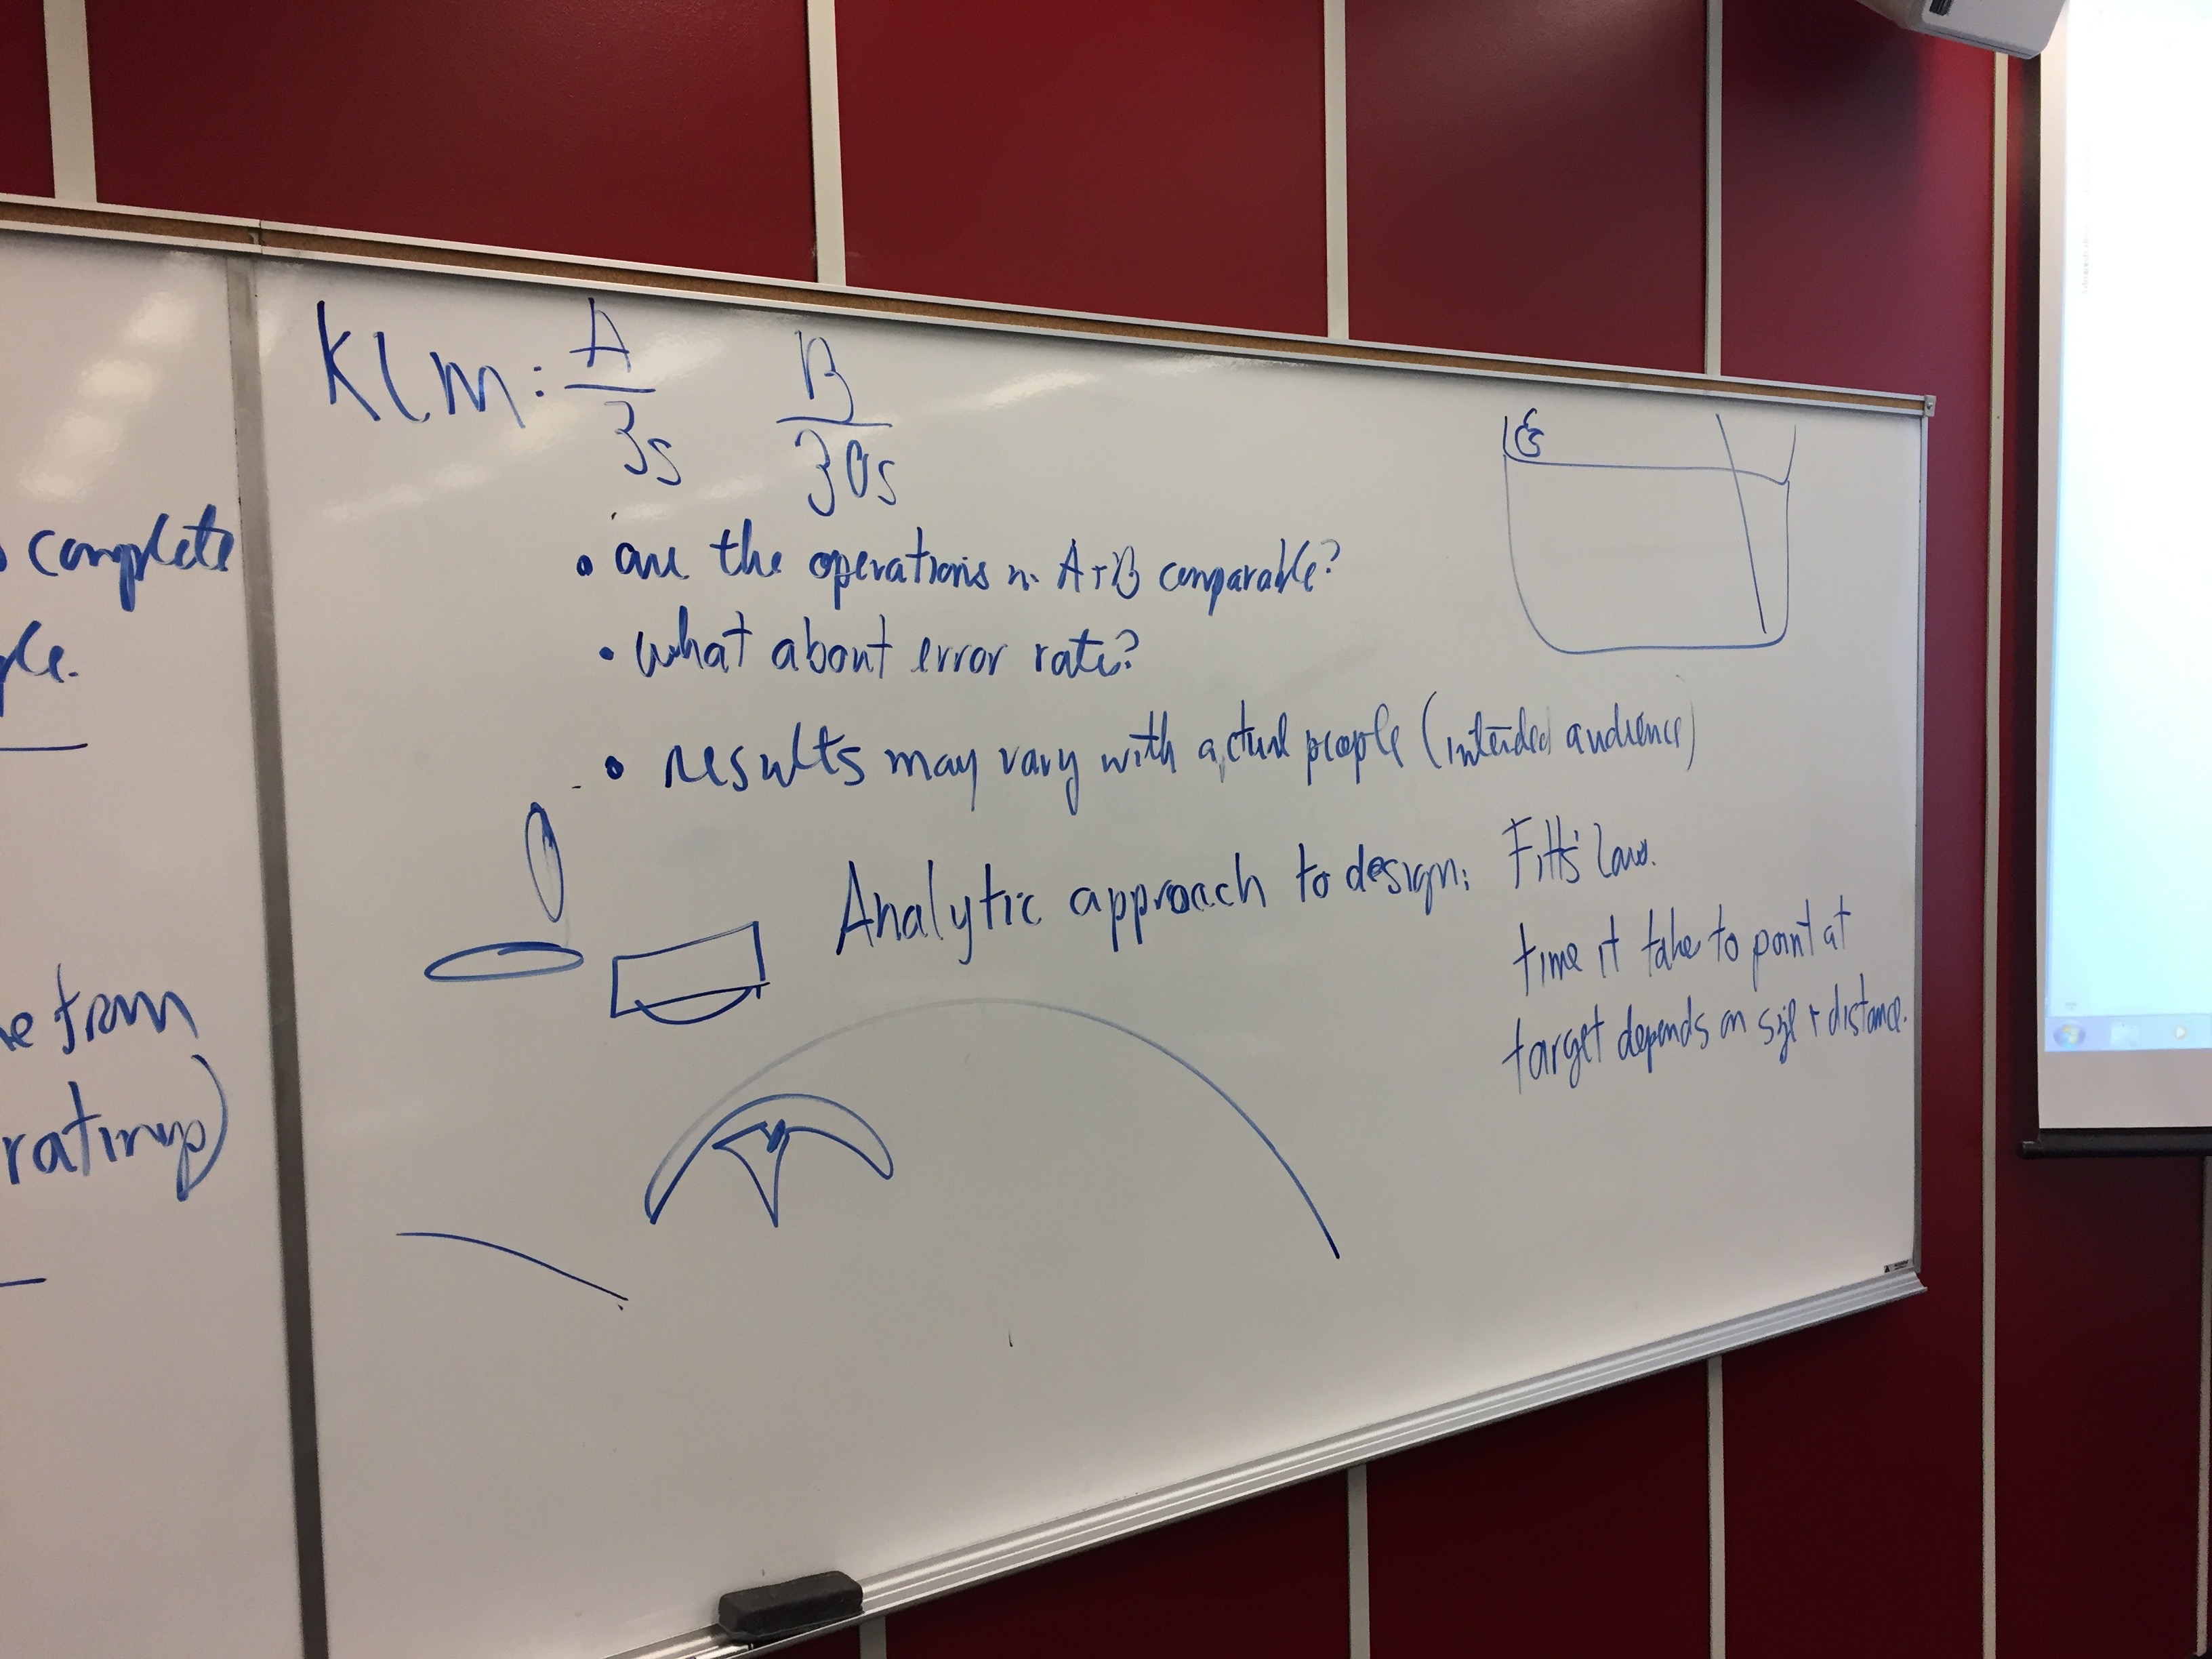 complete
e from
KLM: A B
3s 30s
• are the operations in A + B comparable?
• what about error rate?
• results may vary with actual people (intended audience)
Analytic approach to design: Fitts' law.
time it take to point at
target depends on size + distance.